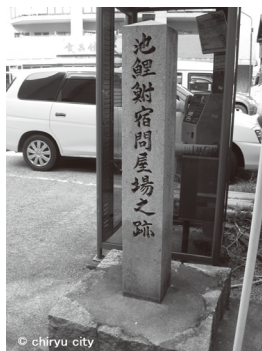 池鯉鮒宿問屋場之跡
© chiryu city